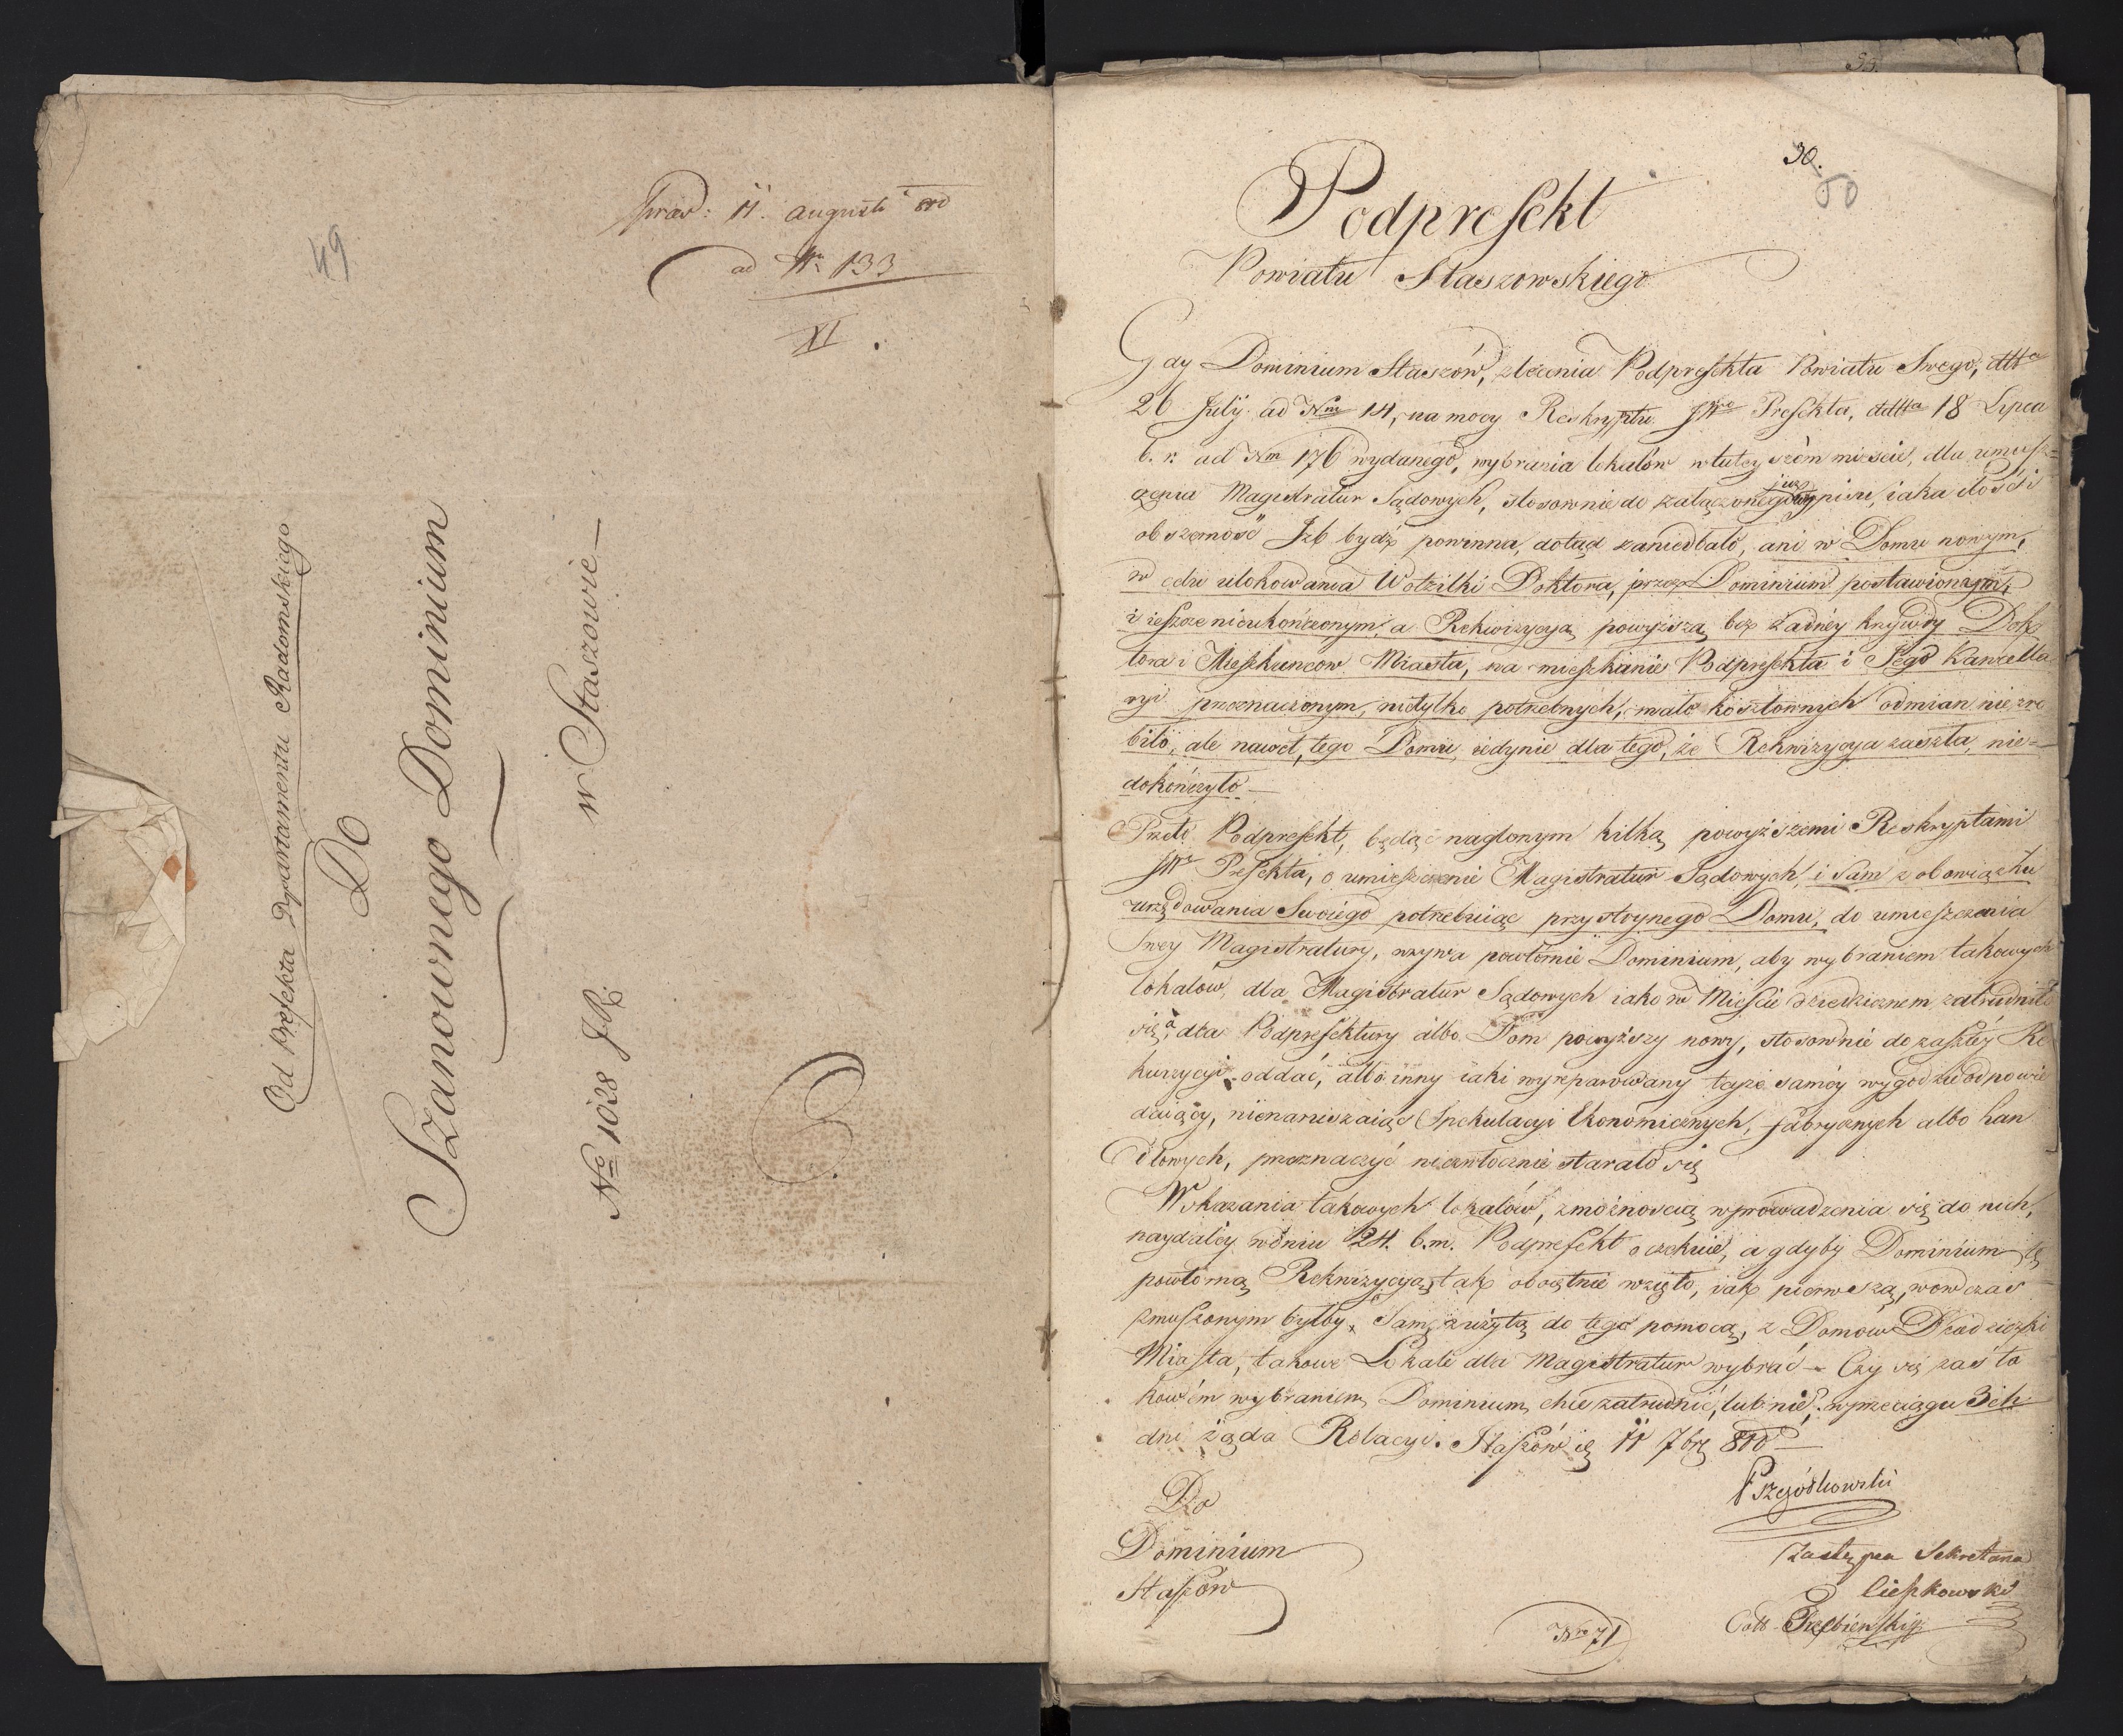 49
præs: 11. augusti 810
ad Nr 133
XI.
Od Prefekta Departamentu Radomskiego
Do
Szanownego Dominium
w Staszowie —
No 1028 J.R.
30.
50
Podprefekt
Powiatu Staszowskiego
Gdy Dominium Staszów, zlecenia Podprefekta Powiatu Swego, dtto
26 July ad Nm 14, na mocy Reskryptu JWo Prefekta, ddtta 18 Lipca
b. r. ad Nm 176 wydanego, wybrania lokalów w tuteyszém mieście, dla umiesz=
czenia Magistratur Sądowych, stosownie do załączonego wypisu, iaka ilość i
obszerność Izb bydź powinna, dotąd zaniedbało, ani w Domu nowym,
w celu ulokowania Wotzilki Doktora, przez Dominium postawionym,
i ieszcze nieukończonym, a Rekwizycyą powyższą, bez żadnéy krzywdy Dok
tora i Mieszkancow Miasta, na mieszkanie Podprefekta i Jego Kancella
ryi przeznaczonym, nietylko potrzebnych, mało kosztownych odmian nie zro
biło, ale nawet, tego Domu, iedynie dla tego, że Rekwizycya zaszła, nie=
dokończyło —
Przeto Podprefekt, będąc naglonym kilką powyższemi Reskryptami
JWo Prefekta, o umieszczenie Magistratur Sądowych, i Sam z obowiązku
urzędowania Swoiego potrzebuiąc przystoynego Domu, do umieszczenia
Swey Magistratury, wzywa powtórnie Dominium, aby wybraniem takowych
lokalów, dla Magistratur Sądowych iako w Mieście dziedzicznem zatrudniło
się, a dla Podprefektury albo Dom powyższy nowy, stosownie do zaszłéy Re
kwizycyi oddać, albo inny iaki wyreparowany teyże saméy wygodzie odpowie
daiący, nienaruszaiąc Spekulacyi Ekonomicznych, fabrycznych albo han
dlowych, przeznaczyć niezwłocznie starało się
Wskazania takowych lokalów, z możnością wprowadzenia się do nich,
naydaléy w dniu 24. b.m. Podprefekt oczekuie, a gdyby Dominium tę
powtorną Rekwizycyą, tak oboiętnie wzięło, iak pierwszą, wowczas
zmuszonym byłby, Sam, z użytą do tego pomocą, z Domow Dziedziczki
Miasta, takowe Lokale dla Magistratur wybrać — Czy się zaś ta
kowém wybraniem Dominium chce zatrudnić, lub nie? w przeciągu 3ch
dni żąda Relacyi. Staszów d 11 7br 810 —
Do
Dominium
Staszów
Zastępca Sekretarza
Ciepkowski
Nro 71